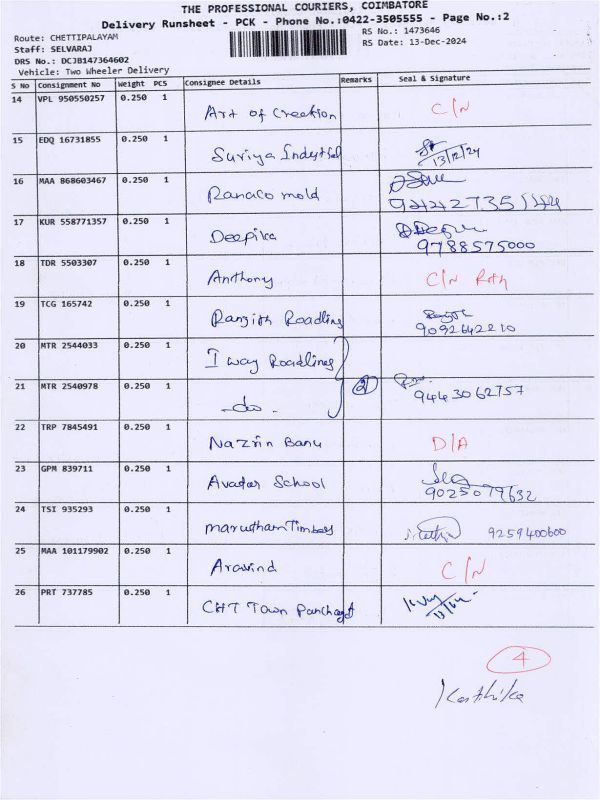 THE PROFESSIONAL COURIERS, COIMBATORE
Delivery Runsheet - PCK - Phone No.:0422-3505555 - Page No.:2
Route: CHETTIPALAYAM
RS No.: 1473646
Staff: SELVARAJ
RS Date: 13-Dec-2024
DRS No.: DCJB147364602
Vehicle: Two Wheeler Delivery
S No Consignment No Weight PCS Consignee Details Remarks Seal & Signature
14 VPL 950550257 0.250 1 Art of Creation C/N
15 EDQ 16731855 0.250 1 Suriya Industrial 13/12/24
16 MAA 868603467 0.250 1 Ranaco mold
17 KUR 558771357 0.250 1 Deepika 9788575000
18 TDR 5503307 0.250 1 Anthony C/N
19 TCG 165742 0.250 1 Rangith Roadlines 9092642210
20 MTR 2544033 0.250 1 I way Roadlines
21 MTR 2540978 0.250 1 -do- 2 9443062757
22 TRP 7845491 0.250 1 Nazrin Banu D/A
23 GPM 839711 0.250 1 Avadar School 9025079632
24 TSI 935293 0.250 1 Marutham Timbers 9259400600
25 MAA 101179902 0.250 1 Aravind C/N
26 PRT 737785 0.250 1 CHT Town Panchayt
4
Karthika